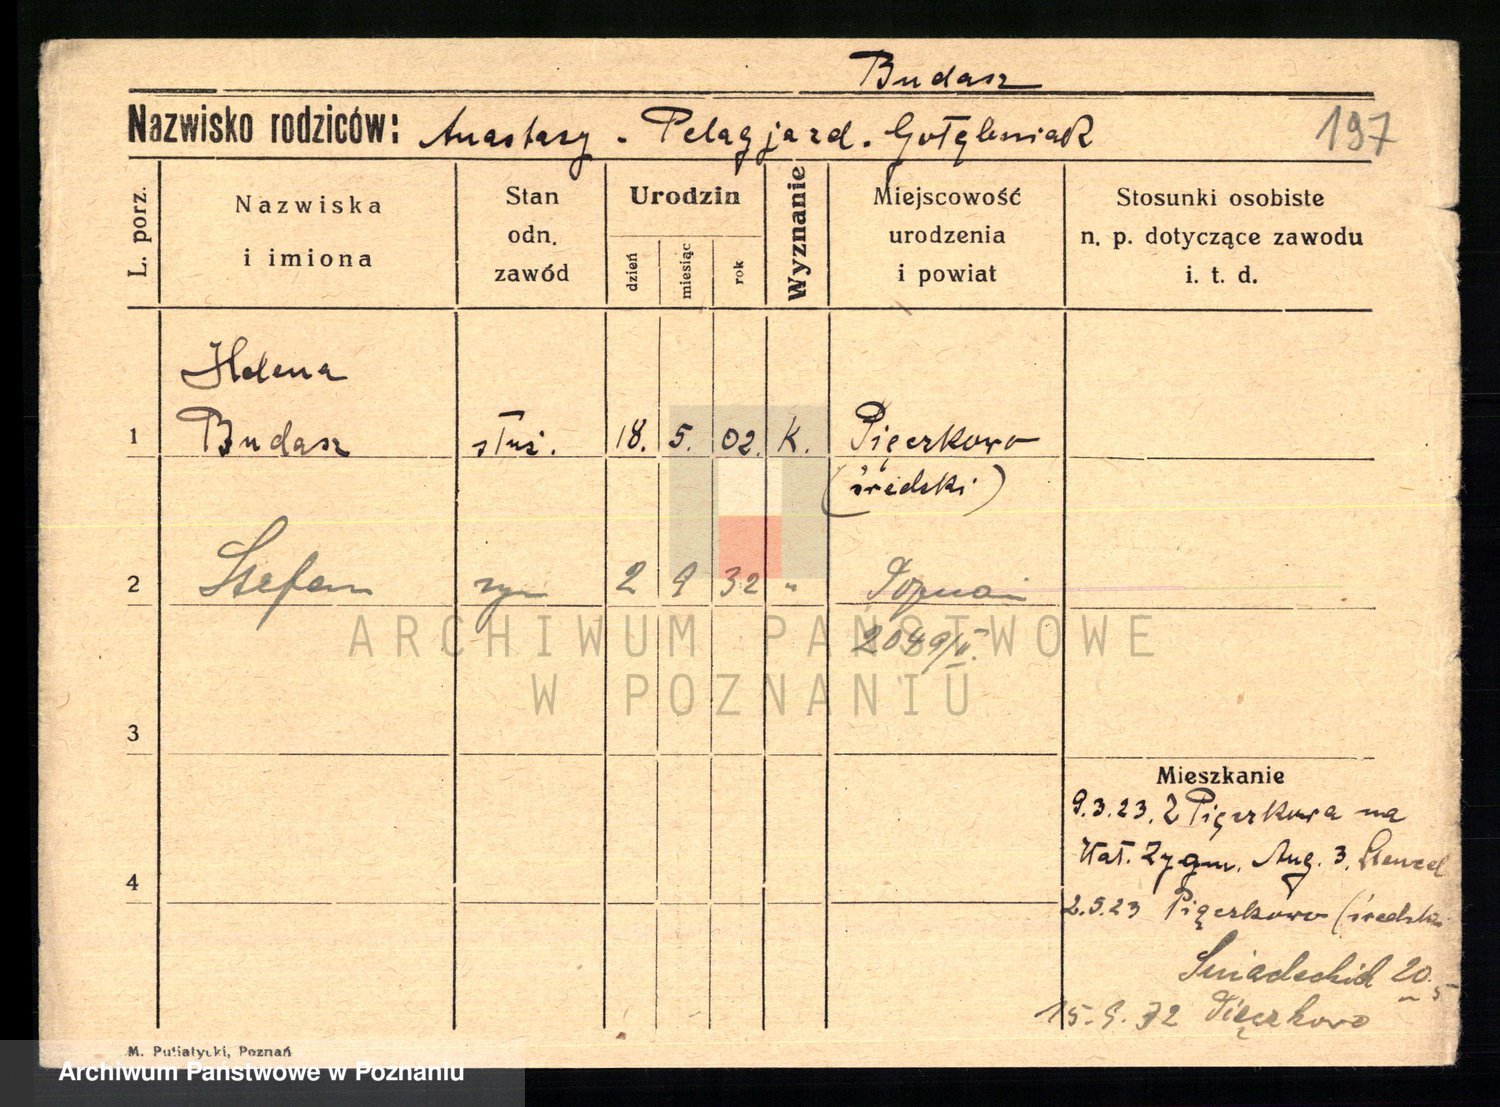 Budasz
Nazwisko rodziców: Anastazy - Pelagja zd. Gołębniak 197
L. porz.
Nazwiska
i imiona
Stan
odn.
zawód
Urodzin
dzień
miesiąc
rok
Wyznanie
Miejscowość
urodzenia
i powiat
Stosunki osobiste
n. p. dotyczące zawodu
i. t. d.
Helena
1 Budasz służ. 18. 5. 02. K. Pięczkowo
(średski)
2 Stefan syn 2 9 32 " Poznań
2049/II.
ARCHIWUM PAŃSTWOWE
W POZNANIU
3
Mieszkanie
9.3.23. Z Pięczkowa na
Zygm. Aug. 3.
4
2.5.23 Pięczkowo (średsk
Śniadeckich 20.
15.9.32 Pięczkowo
M. Putiatycki, Poznań
Archiwum Państwowe w Poznaniu